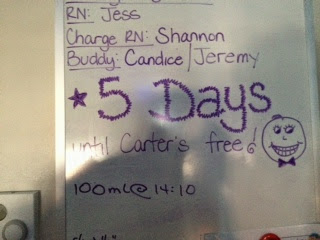 RN: Jess
Charge RN: Shannon
Buddy: Candice/Jeremy
★5 Days
until Carter's free!
100mL@ 14:10